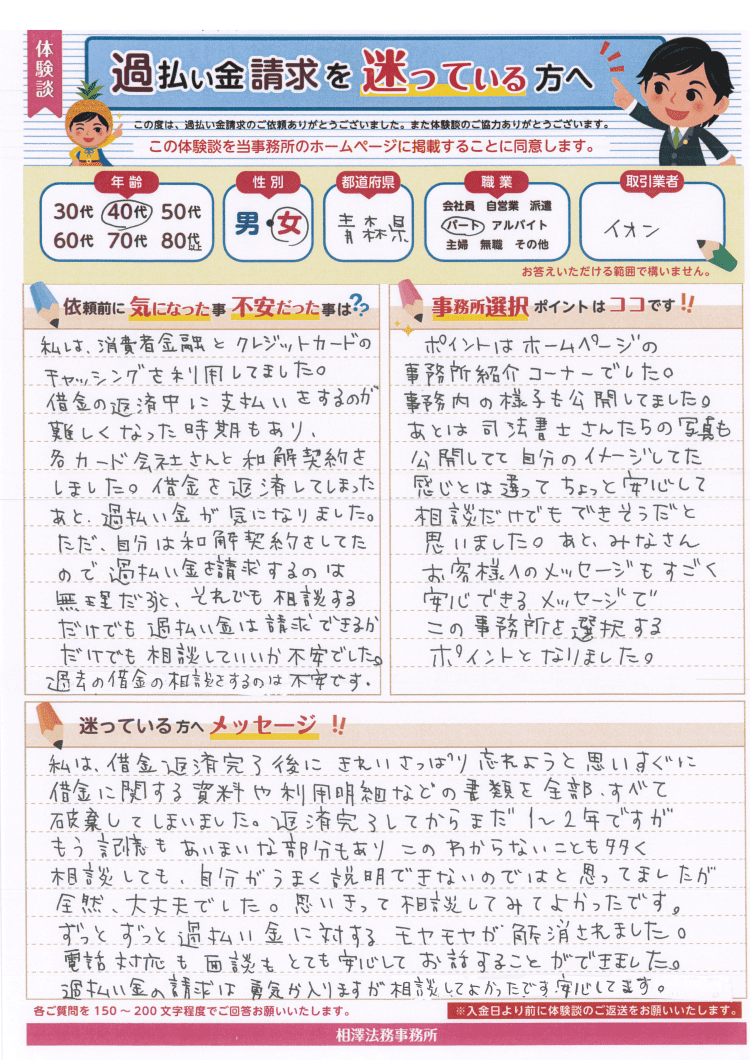 体験談
過払い金請求を迷っている方へ
この度は、過払い金請求のご依頼ありがとうございました。また体験談のご協力ありがとうございます。
この体験談を当事務所のホームページに掲載することに同意します。
年齢
30代 40代 50代
60代 70代 80代以上
性別
男・女
都道府県
青森県
職業
会社員 自営業 派遣
パート アルバイト
主婦 無職 その他
取引業者
イオン
お答えいただける範囲で構いません。
依頼前に気になった事 不安だった事は??
私は、消費者金融とクレジットカードの
キャッシングを利用してました。
借金の返済中に支払いをするのが
難しくなった時期もあり、
各カード会社さんと和解契約を
しました。借金を返済してしまった
あと、過払い金が気になりました。
ただ、自分は和解契約をしてた
ので過払い金を請求するのは
無理だろうと、それでも相談する
だけでも過払い金は請求できるか
だけでも相談していいか不安でした。
過去の借金の相談をするのは不安です.
事務所選択ポイントはココです!!
ポイントはホームページの
事務所紹介コーナーでした。
事務内の様子も公開してました。
あとは司法書士さんたちの写真も
公開してて自分のイメージしてた
感じとは違ってちょっと安心して
相談だけでもできそうだと
思いました。あと、みなさん
お客様へのメッセージもすごく
安心できるメッセージで
この事務所を選択する
ポイントとなりました。
迷っている方へメッセージ!!
私は、借金返済完了後にきれいさっぱり忘れようと思いすぐに
借金に関する資料や利用明細などの書類を全部、すべて
破棄してしまいました。返済完了してからまだ1〜2年ですが
もう記憶もあいまいな部分もありこのわからないことも多く
相談しても、自分がうまく説明できないのではと思ってましたが
全然、大丈夫でした。思いきって相談してみてよかったです。
ずっとずっと過払い金に対するモヤモヤが解消されました。
電話対応も面談もとても安心してお話することができました。
過払い金の請求は勇気が入りますが相談してよかったです。安心してます。
各ご質問を150〜200文字程度でご回答お願いいたします。
※入金日より前に体験談のご返送をお願いいたします。
相澤法務事務所